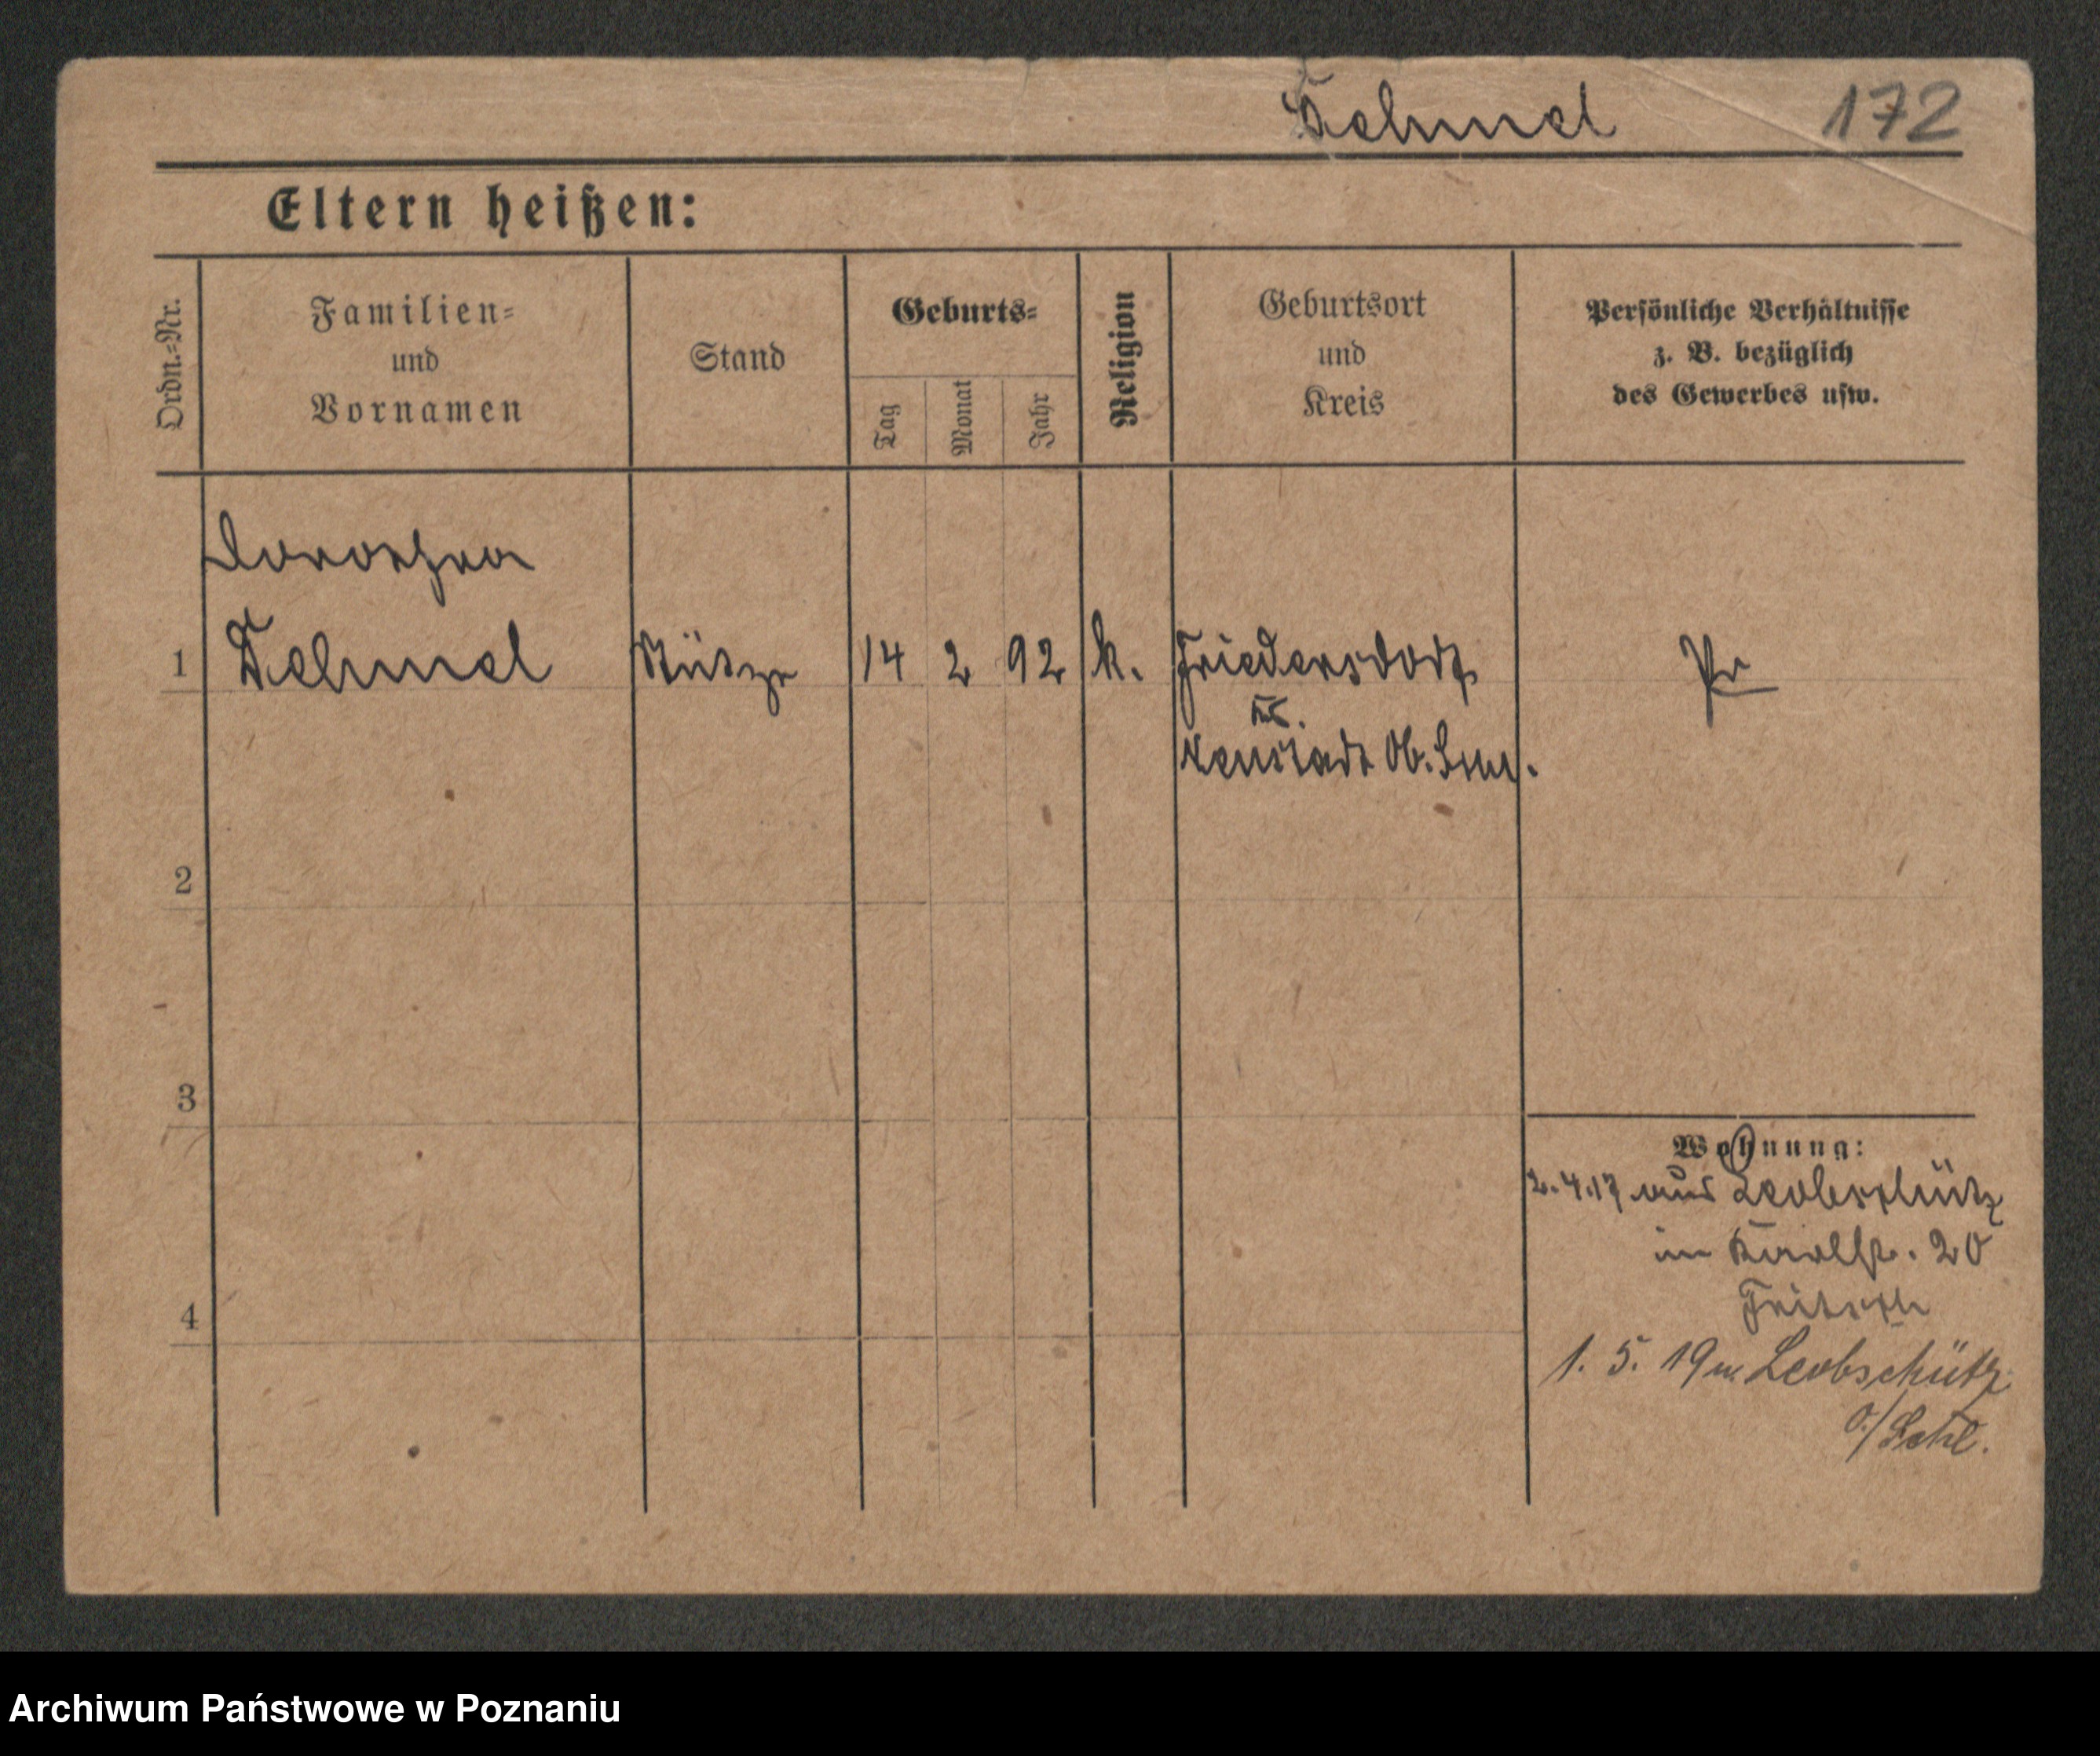 Dehmel 172
Eltern heißen:
Ordn.-Nr.
Familien-
und
Vornamen
Stand
Geburts-
Tag
Monat
Jahr
Religion
Geburtsort
und
Kreis
Persönliche Verhältnisse
z. B. bezüglich
des Gewerbes usw.
Dorothea
1 Dehmel Stütze 14 2 92 k. Friedersdorf Pr
Neustadt Ob. Schl.
2
3
4
Wohnung:
2.4.17 aus Leobschütz
in Karlstr. 20
Fritsch
1. 5. 19 n. Leobschütz
O./Schl.
Archiwum Państwowe w Poznaniu